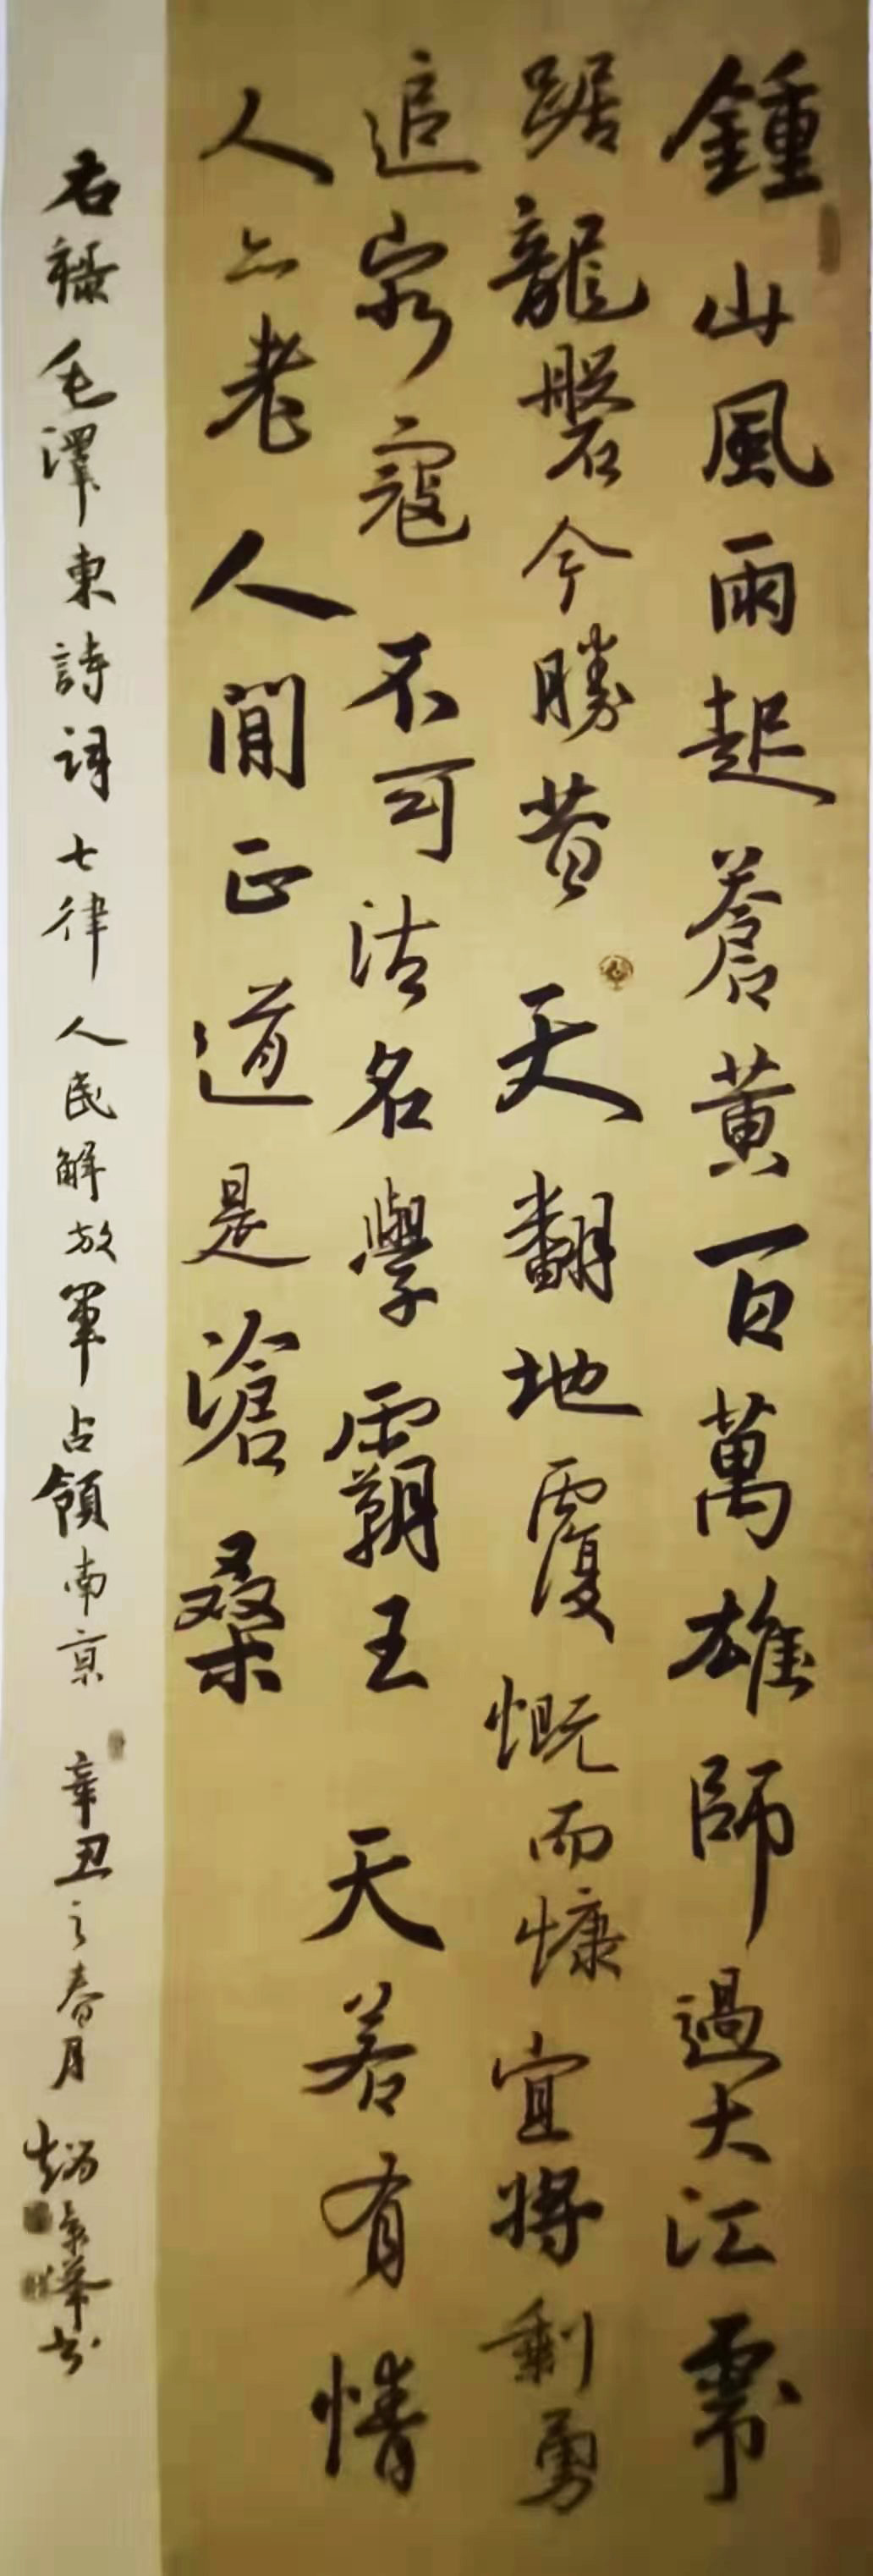 鍾山風雨起蒼黃百萬雄師過大江虎
踞龍磐今勝昔天翻地覆慨而慷宜將剩勇
追窮寇不可沽名學霸王天若有情
人亦老人間正道是滄桑
右錄毛澤東詩詞七律人民解放軍占領南京辛丑之春月趙